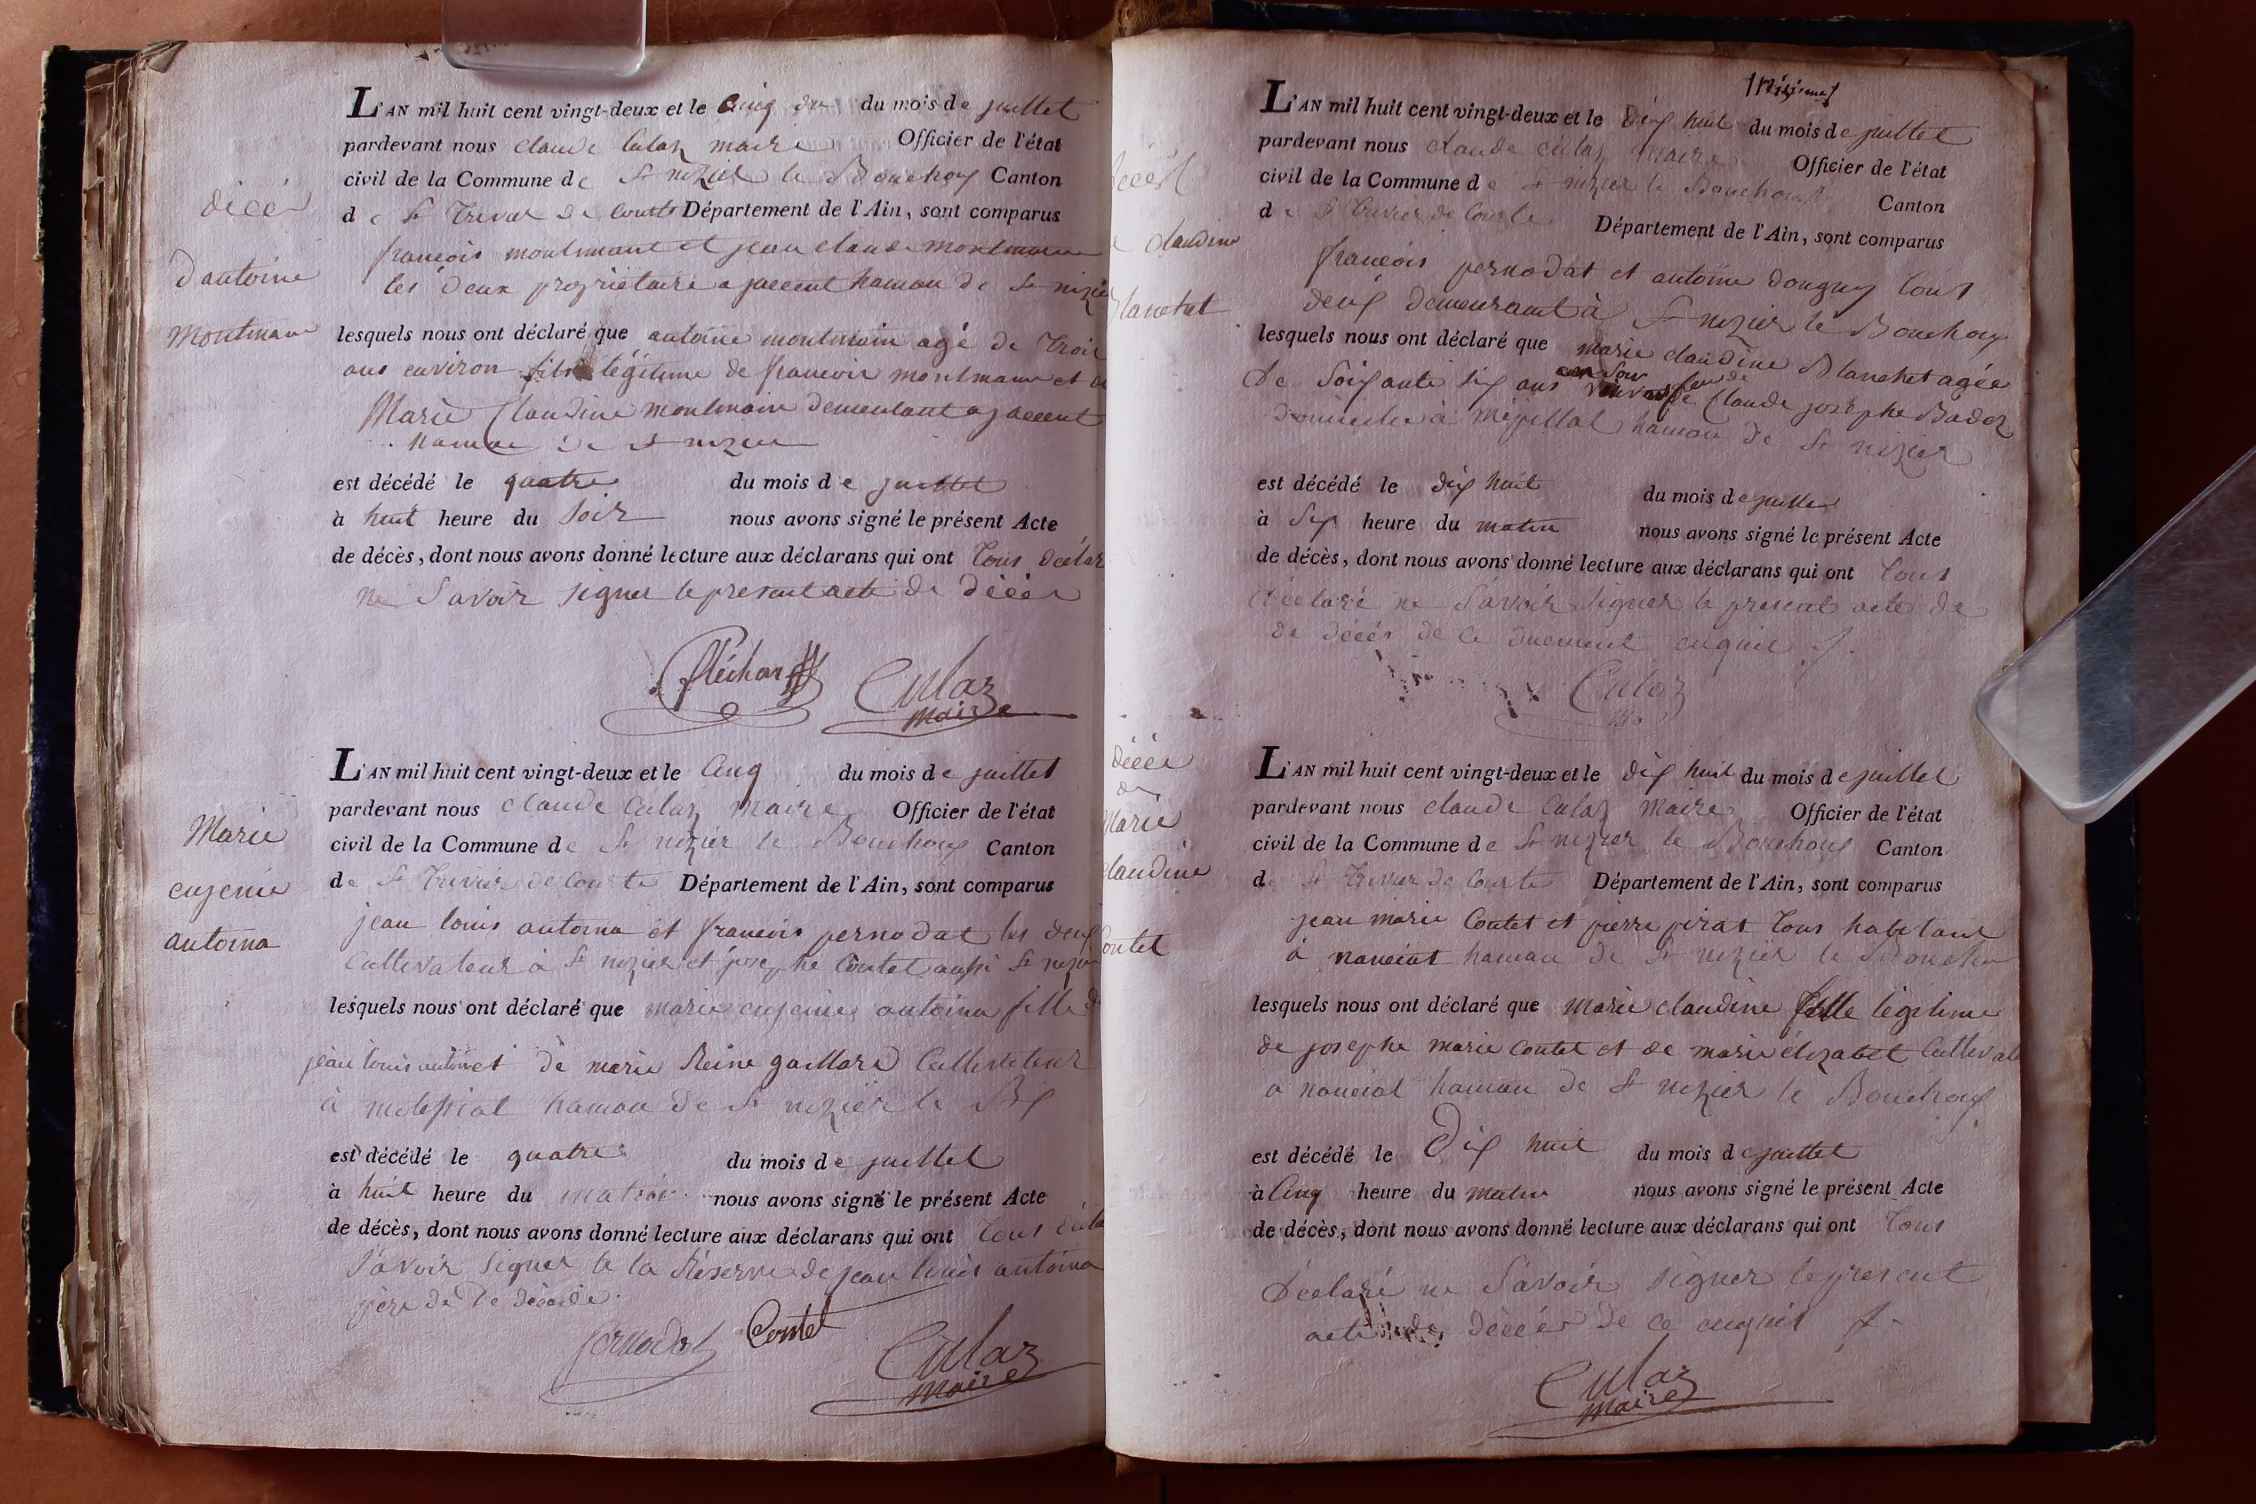 décés
d'antoine
montmain
L'AN mil huit cent vingt-deux et le cinq du mois de juillet
pardevant nous claude Culaz maire Officier de l'état
civil de la Commune de St nizier le Bouchoux Canton
de St Trivier de Courte Département de l'Ain, sont comparus
francois et jean claude
les deux propriétaire a jaccent hamau de St nizier
lesquels nous ont déclaré que antoine montmain agé de trois
ans environ fils légitime de francois montmain et de
Marie Claudine montmain demeurant a jaccent
hamau de St nizier
est décédé le quatre du mois de juillet
à huit heure du soir nous avons signé le présent Acte
de décès, dont nous avons donné lecture aux déclarans qui ont tous déclar
ne savoir signer le present acte de décés
Culaz
maire
Marie
eugenie
antoina
L'AN mil huit cent vingt-deux et le cinq du mois de juillet
pardevant nous claude Culaz maire Officier de l'état
civil de la Commune de St nizier le Bouchoux Canton
de St Trivier de Courte Département de l'Ain, sont comparus
jean louis antoina et francois pernodat les deux
cultivateur à St nizier et josephe Contet aussi St nizier
lesquels nous ont déclaré que marie eugenie antoina fille de
jean louis et de marie Reine gaillard Cultivateur
à hamau de St nizier le
est décédé le quatre du mois de juillet
à huit heure du nous avons signé le présent Acte
de décès, dont nous avons donné lecture aux déclarans qui ont tous
savoir signer a la Réserve de jean louis antoina
père de
pernodat Contet Culaz
maire
décés
claudine
Blanchet
L'AN mil huit cent vingt-deux et le dix huit du mois de juillet
pardevant nous claude Culaz maire Officier de l'état
civil de la Commune de St nizier le Bouchoux Canton
de St Trivier de Courte Département de l'Ain, sont comparus
francois pernodat et antoine donguy tous
deux demeurant à St nizier le Bouchoux
lesquels nous ont déclaré que marie claudine Blanchet agée
de soixante six ans Claude josephe Badoz
à hamau de St nizier
est décédé le dix huit du mois de juillet
à six heure du matin nous avons signé le présent Acte
de décès, dont nous avons donné lecture aux déclarans qui ont tous
déclaré ne savoir signer le present acte de
de décés de ce enquis
Culaz
décés
de
Marie
claudine
Contet
L'AN mil huit cent vingt-deux et le dix huit du mois de juillet
pardevant nous claude Culaz maire Officier de l'état
civil de la Commune de St nizier le Bouchoux Canton
de St Trivier de Courte Département de l'Ain, sont comparus
jean marie Contet et pierre pirat tous habitant
à nanciat hamau de St nizier le Bouchoux
lesquels nous ont déclaré que marie claudine fille légitime
de josephe marie Contet et de marie élizabet
a nanciat hamau de St nizier le Bouchoux
est décédé le dix huit du mois de juillet
à cinq heure du matin nous avons signé le présent Acte
de décès, dont nous avons donné lecture aux déclarans qui ont tous
déclaré ne savoir signer le present
acte de décés de ce enquis
Culaz
maire